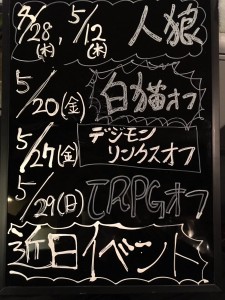 4/28(木), 5/12(木) 人狼
5/20(金) 白猫オフ
5/27(金) デジモンリンクスオフ
5/29(日) TRPGオフ
近日イベント